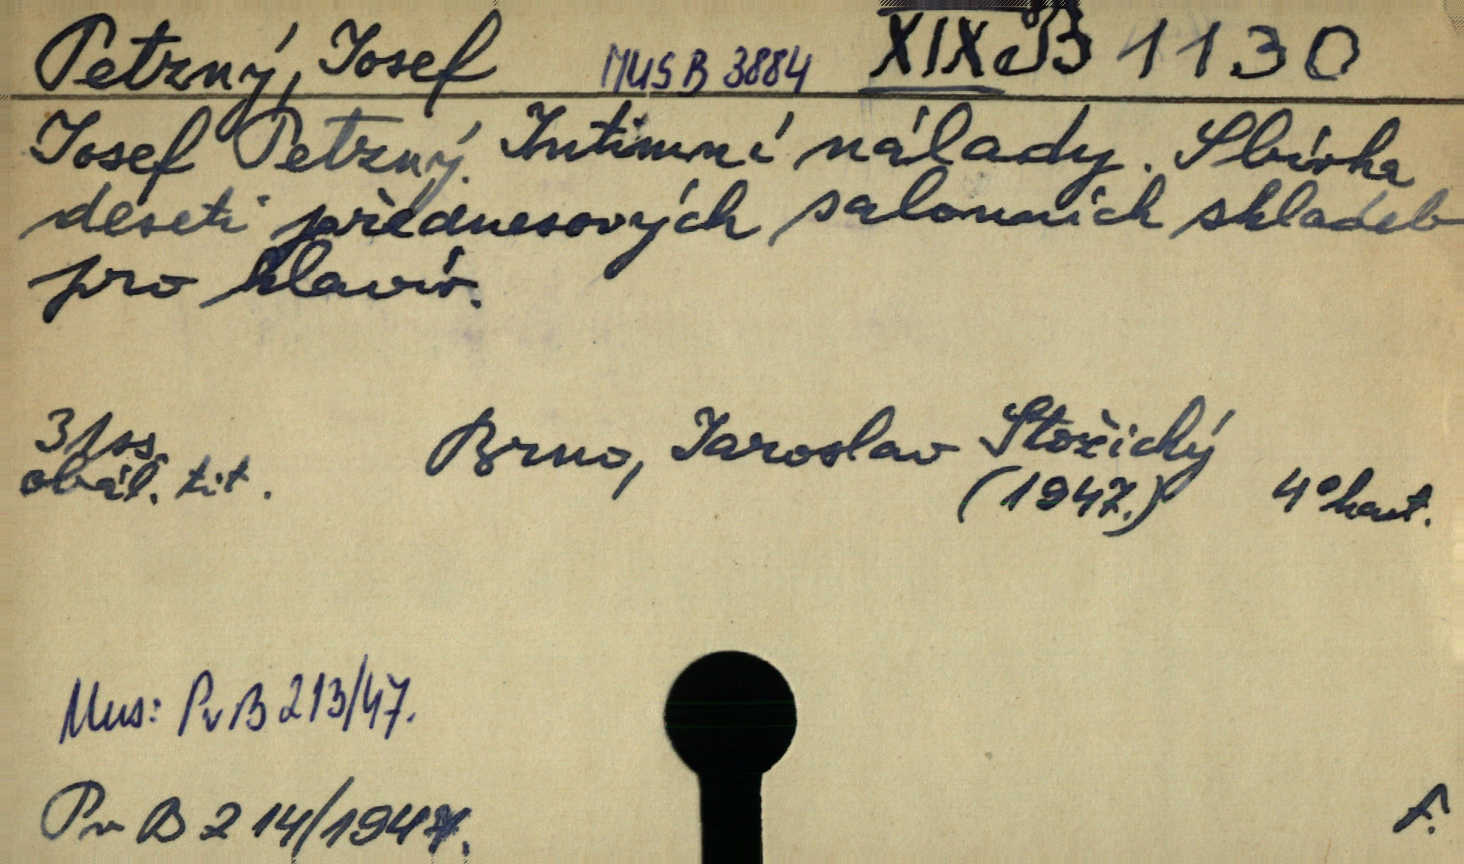 Petzný, Josef MUS B 3884 XIX B 1130
Josef Petzný. Intimní nálady. Sbírka
deseti přednesových salonních skladeb
pro klavír.
31 ss.
obál. tit.
Brno, Jaroslav Stožický
(1947.) 4° kart.
Mus: Pv B 213/47.
Pv B 214/1947.
f.